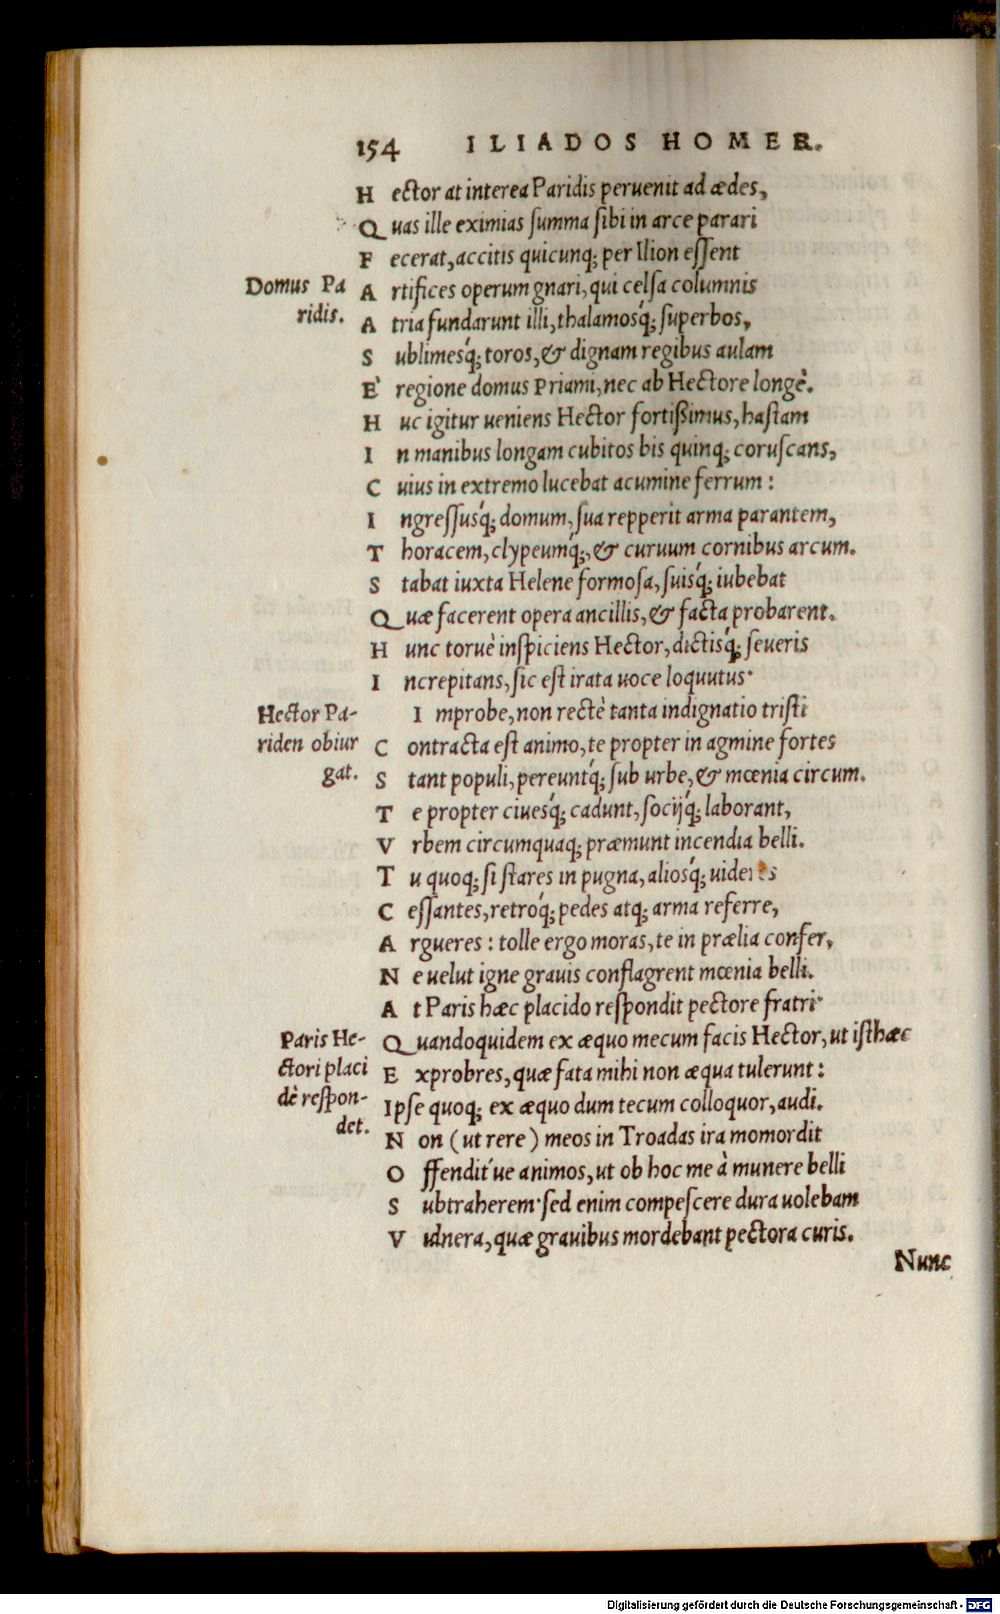 154 ILIADOS HOMER.
Hector at interea Paridis peruenit ad ædes,
Quas ille eximias summa sibi in arce parari
Fecerat, accitis quicunq; per Ilion essent
Domus Pa
Artifices operum gnari, qui celsa columnis
ridis.
Atria fundarunt illi, thalamosq́; superbos,
Sublimesq́; toros, & dignam regibus aulam
È regione domus Priami, nec ab Hectore longè.
Huc igitur ueniens Hector fortißimus, hastam
In manibus longam cubitos bis quinq; coruscans,
Cuius in extremo lucebat acumine ferrum:
Ingressusq́; domum, sua repperit arma parantem,
Thoracem, clypeumq́;, & curuum cornibus arcum.
Stabat iuxta Helene formosa, suisq́; iubebat
Quæ facerent opera ancillis, & facta probarent.
Hunc toruè inspiciens Hector, dictisq́; seueris
Increpitans, sic est irata uoce loquutus·
Hector Pa-
Improbe, non rectè tanta indignatio tristi
riden obiur
Contracta est animo, te propter in agmine fortes
gat.
Stant populi, pereuntq́; sub urbe, & mœnia circum.
Te propter ciuesq́; cadunt, socijq́; laborant,
Vrbem circumquaq; præmunt incendia belli.
Tu quoq; si stares in pugna, aliosq́; uideres
Cessantes, retroq́; pedes atq; arma referre,
Argueres: tolle ergo moras, te in prælia confer,
Ne uelut igne grauis conflagrent mœnia belli.
At Paris hæc placido respondit pectore fratri·
Paris He-
Quandoquidem ex æquo mecum facis Hector, ut isthæc
ctori placi
Exprobres, quæ fata mihi non æqua tulerunt:
dè respon-
Ipse quoq; ex æquo dum tecum colloquor, audi.
det.
Non (ut rere) meos in Troadas ira momordit
Offendit´ue animos, ut ob hoc me à munere belli
Subtraherem· sed enim compescere dura uolebam
Vulnera, quæ grauibus mordebant pectora curis.
Nunc
Digitalisierung gefördert durch die Deutsche Forschungsgemeinschaft - DFG